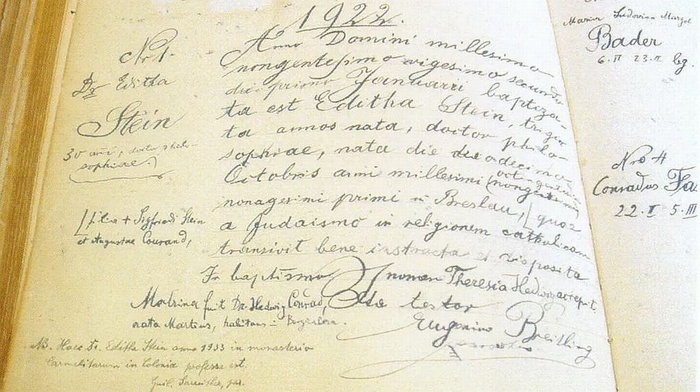 1922.
No 1.
Dr Editha
Stein
30 ann., doctor philo-
sophiae.
filia + Sigfredi Stein
et Augustae Courand,
Anno Domini millesimo
nongentesimo vigesimo secundo
die primo Januarii baptiza-
ta est Editha Stein, trigin-
ta annos nata, doctor philo-
sophiae, nata die duodecimo
Octobris anni millesimi octingen
nonagesimi primi in Breslau, quae
a Judaismo in religionem catholicam
transivit bene instructa et disposita
In baptismo nomen Theresia Hedwig accepit
Matrina fuit Dr. Hedwig Conrad,
nata Martius, habitans in Bergzabern.
Ita testor
Eugenius Breitling
NB. Haec Dr. Editha Stein anno 1933 in monasterio
Carmelitarum in Colonia professa est.
Maria Ludovica Margar
Bader
6. II 23. II
Nro 4
Conradus Fa
22. I 5. III